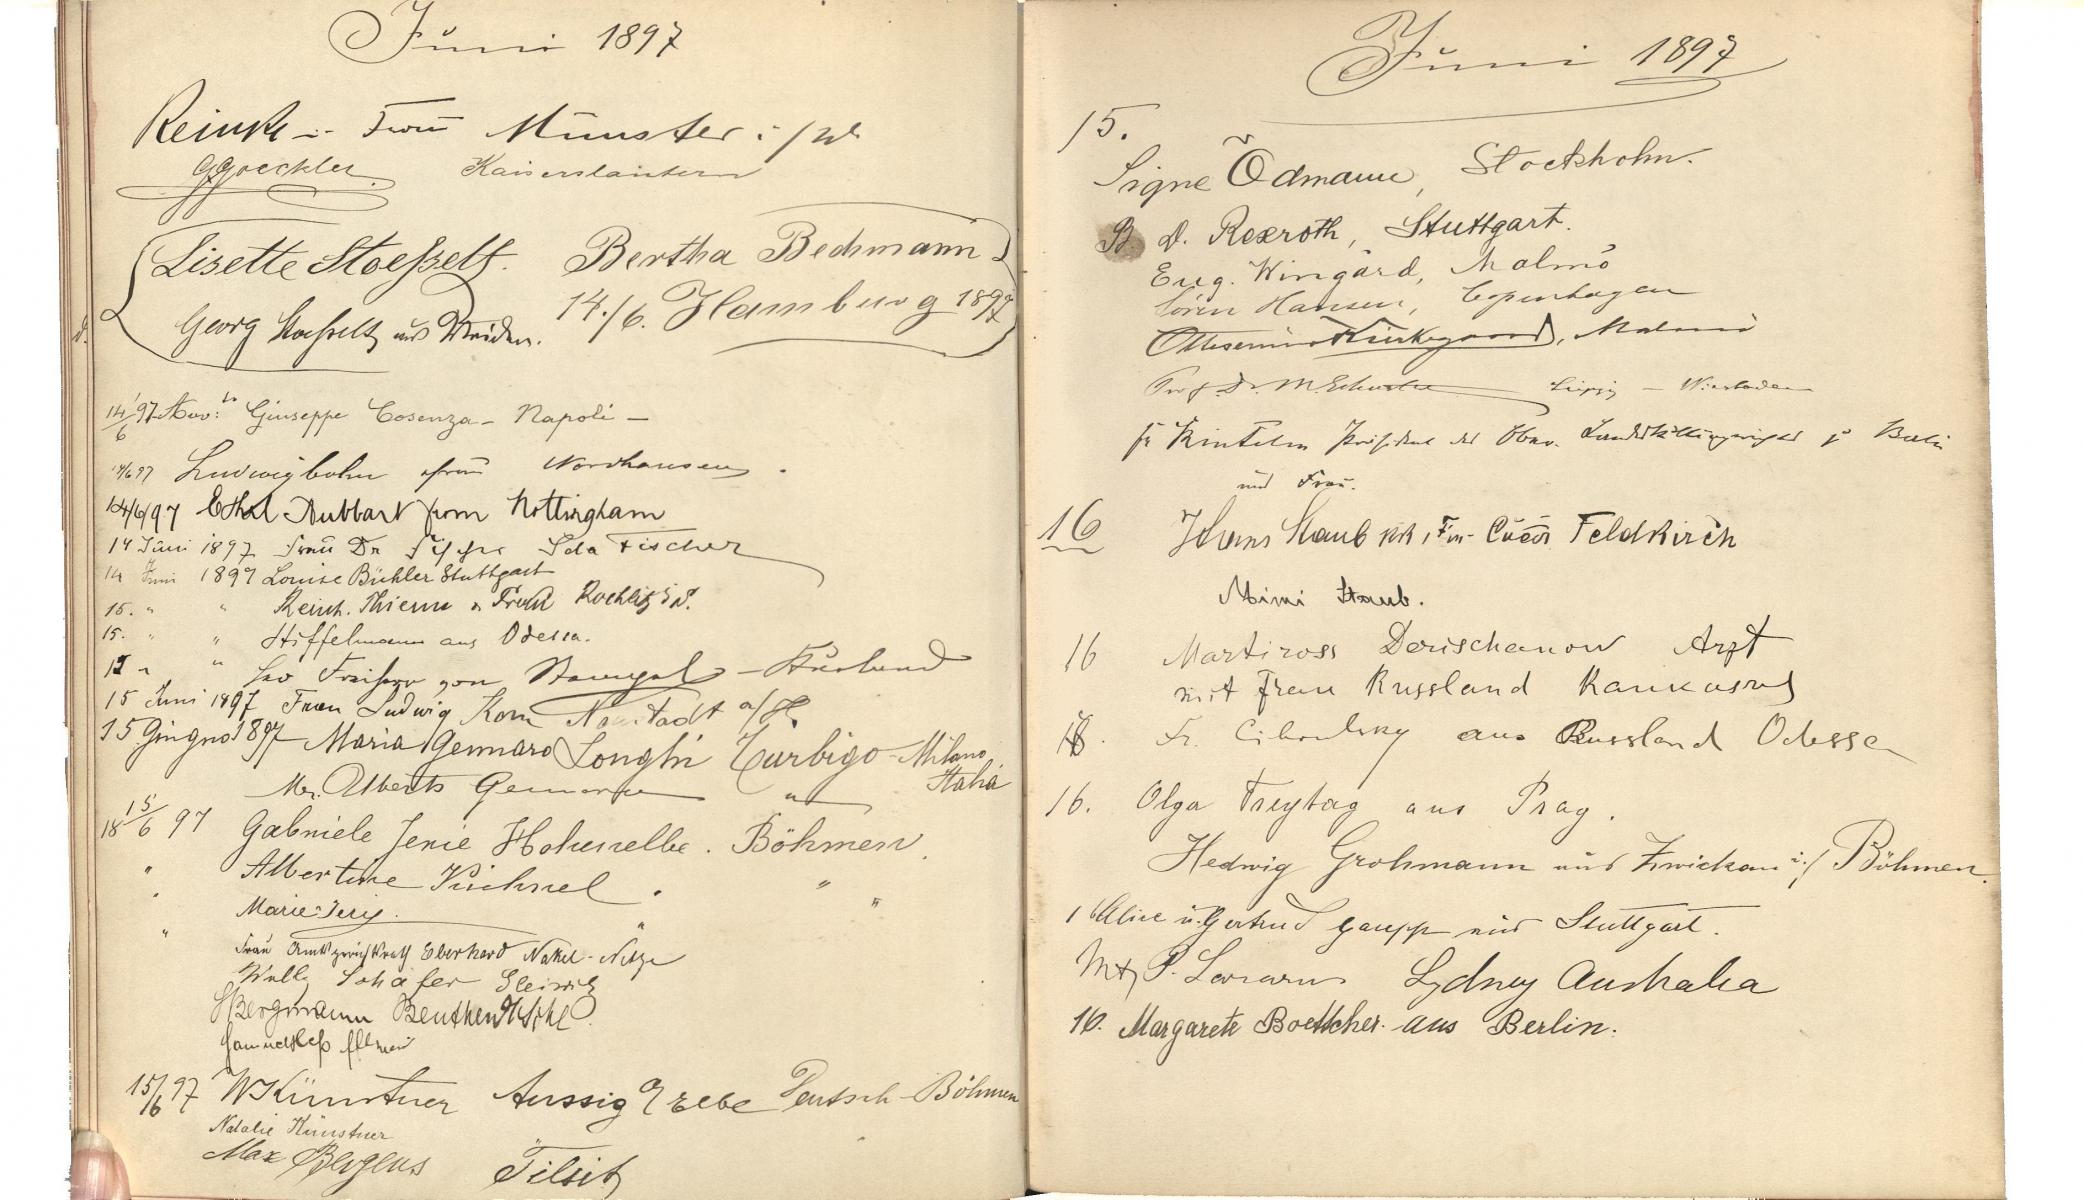 Juni 1897
Reinke u. Frau Münster i/W
G. Goeckler Kaiserslautern
Lisette Stoesselt. Bertha Bechmann
Georg Stoesselt aus Weiden. 14./6. Hamburg 1897
14/6 97 Giuseppe Cosenza - Napoli -
14/6 97 Ludwig Frau Nordhausen.
14/6/97 Ethel Hubbart from Nottingham
14 Juni 1897 Frau Dr Fischer Ida Fischer
14 Juni 1897 Louise Bühler Stuttgart
15. " " Reinh. Thieme u Frau Rochlitz i/S.
15. " " Stiffelmann aus Odessa.
15 " " Leo Freiherr von - Kurland
15 Juni 1897 Frau Ludwig Korn Neustadt a/H.
15 Giugno 1897 Maria Gennaro Longhi Turbigo - Milano
Italia
Alberto Gennaro "
15/6 97 Gabriele Jerie Hohenelbe. Böhmen.
" Albertine Kühnel " "
" Marie Jerie. " "
" Frau Amtsgerichtsrath Eberhard Nakel-Netze
Willy Schäfer Gleiwitz
Bergmann Beuthen O/Schl.
15/6 97 W Künstner Aussig a/Elbe Deutsch-Böhmen
Natalie Künstner
Max Tilsit
Juni 1897
15.
Signe Ödmann, Stockholm.
B. D. Rexroth, Stuttgart.
Eug. Wingård, Malmö
Sören Hansen, Copenhagen
Kirkegaard, Malmö
Prof. Dr. M. Leipzig - Wiesbaden
Rintelen Präsident des Ober-Landeskulturgerichts zu Berlin
und Frau.
16 Hans Staub kk, Feldkirch
Mimi Staub.
16 Martiross Derischanow Arzt
mit Frau Russland Kaukasus
16. Fr. aus Russland Odessa
16. Olga Freytag aus Prag.
Hedwig Grohmann aus Zwickau i./ Böhmen.
16 Alice u. Gertrud Gaupp aus Stuttgart.
P. Sydney Australia
16. Margarete Boettcher. aus Berlin.